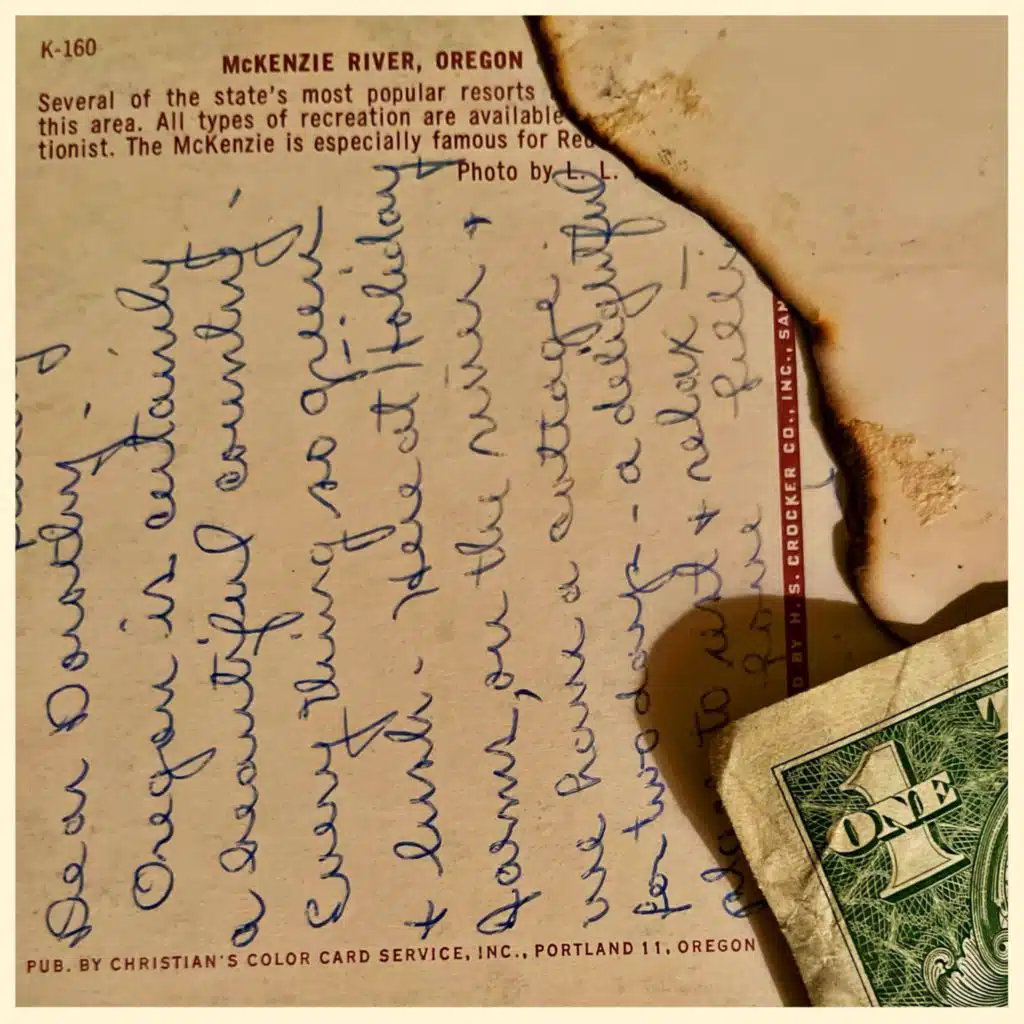 K-160
McKENZIE RIVER, OREGON
Several of the state's most popular resorts
this area. All types of recreation are available
tionist. The McKenzie is especially famous for Red
Photo by L. L.
Dear Dorothy -
Oregon is certainly
a beautiful country -
Every thing so green
+ lush - Here at Holiday
Farms, on the river +
we have a cottage
for two days - a delightful
place to rest + relax -
PUB. BY CHRISTIAN'S COLOR CARD SERVICE, INC., PORTLAND 11, OREGON
D BY H. S. CROCKER CO., INC., SAN
1
ONE